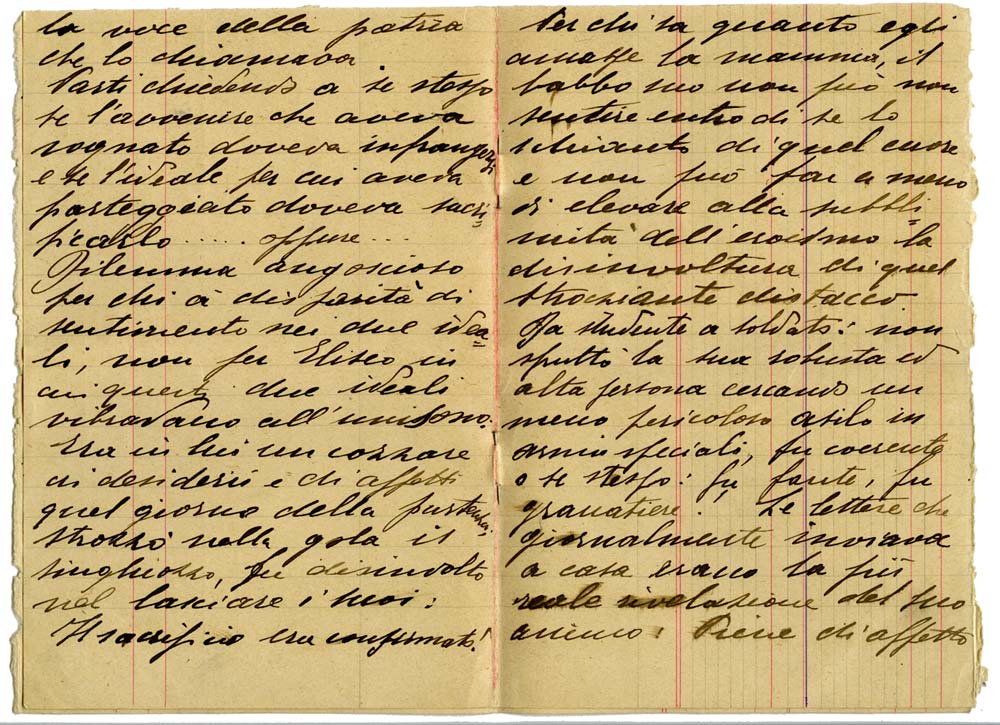 la voce della patria
che lo chiamava
Parti chiedendo a se stesso
se l'avvenire che aveva
sognato doveva infrangersi
e se l'ideale per cui aveva
parteggiato doveva sacri-
ficarlo ..... oppure ...
Dilemma angoscioso
per chi à disparità di
sentimento nei due idea-
li, non per Eliseo in
cui questi due ideali
vibravano all'unisono.
Era in lui un cozzare
di desideri e di affetti
quel giorno della partenza;
strozzò nella gola il
singhiozzo, fu disinvolto
nel lasciare i suoi:
Il sacrificio era confermato!
Per chi sa quanto egli
amasse la mamma, il
babbo suo non può non
sentire entro di se lo
schianto di quel cuore
e non può far a meno
di elevare alla subbli-
mità dell'eroismo la
disinvoltura di quel
straziante distacco
Da studente a soldato: non
sfruttò la sua robusta ed
alta persona cercando un
meno pericoloso asilo in
armi speciali, fu coerente
a se stesso: fu fante, fu
granatiere! Le lettere che
giornalmente inviava
a casa erano la più
reale rivelazione del suo
animo: Piene di affetto